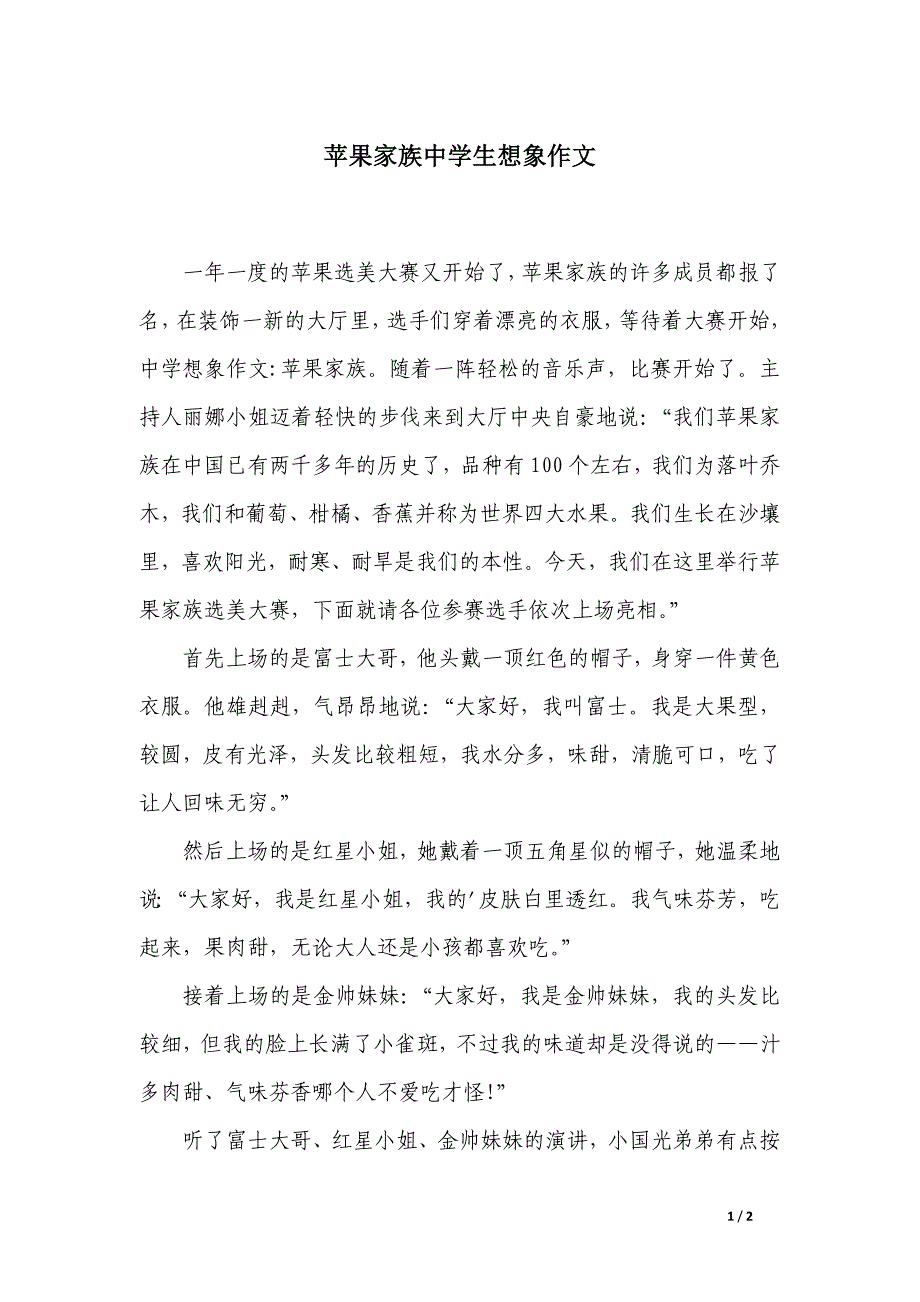 苹果家族中学生想象作文
一年一度的苹果选美大赛又开始了，苹果家族的许多成员都报了
名，在装饰一新的大厅里，选手们穿着漂亮的衣服，等待着大赛开始，
中学想象作文：苹果家族。随着一阵轻松的音乐声，比赛开始了。主
持人丽娜小姐迈着轻快的步伐来到大厅中央自豪地说：“我们苹果家
族在中国已有两千多年的历史了，品种有 100 个左右，我们为落叶乔
木，我们和葡萄、柑橘、香蕉并称为世界四大水果。我们生长在沙壤
里，喜欢阳光，耐寒、耐旱是我们的本性。今天，我们在这里举行苹
果家族选美大赛，下面就请各位参赛选手依次上场亮相。”
首先上场的是富士大哥，他头戴一顶红色的帽子，身穿一件黄色
衣服。他雄赳赳，气昂昂地说：“大家好，我叫富士。我是大果型，
较圆，皮有光泽，头发比较粗短，我水分多，味甜，清脆可口，吃了
让人回味无穷。”
然后上场的是红星小姐，她戴着一顶五角星似的帽子，她温柔地
说：“大家好，我是红星小姐，我的′皮肤白里透红。我气味芬芳，吃
起来，果肉甜，无论大人还是小孩都喜欢吃。”
接着上场的是金帅妹妹：“大家好，我是金帅妹妹，我的头发比
较细，但我的脸上长满了小雀斑，不过我的味道却是没得说的——汁
多肉甜、气味芬香哪个人不爱吃才怪！”
听了富士大哥、红星小姐、金帅妹妹的演讲，小国光弟弟有点按
1 / 2